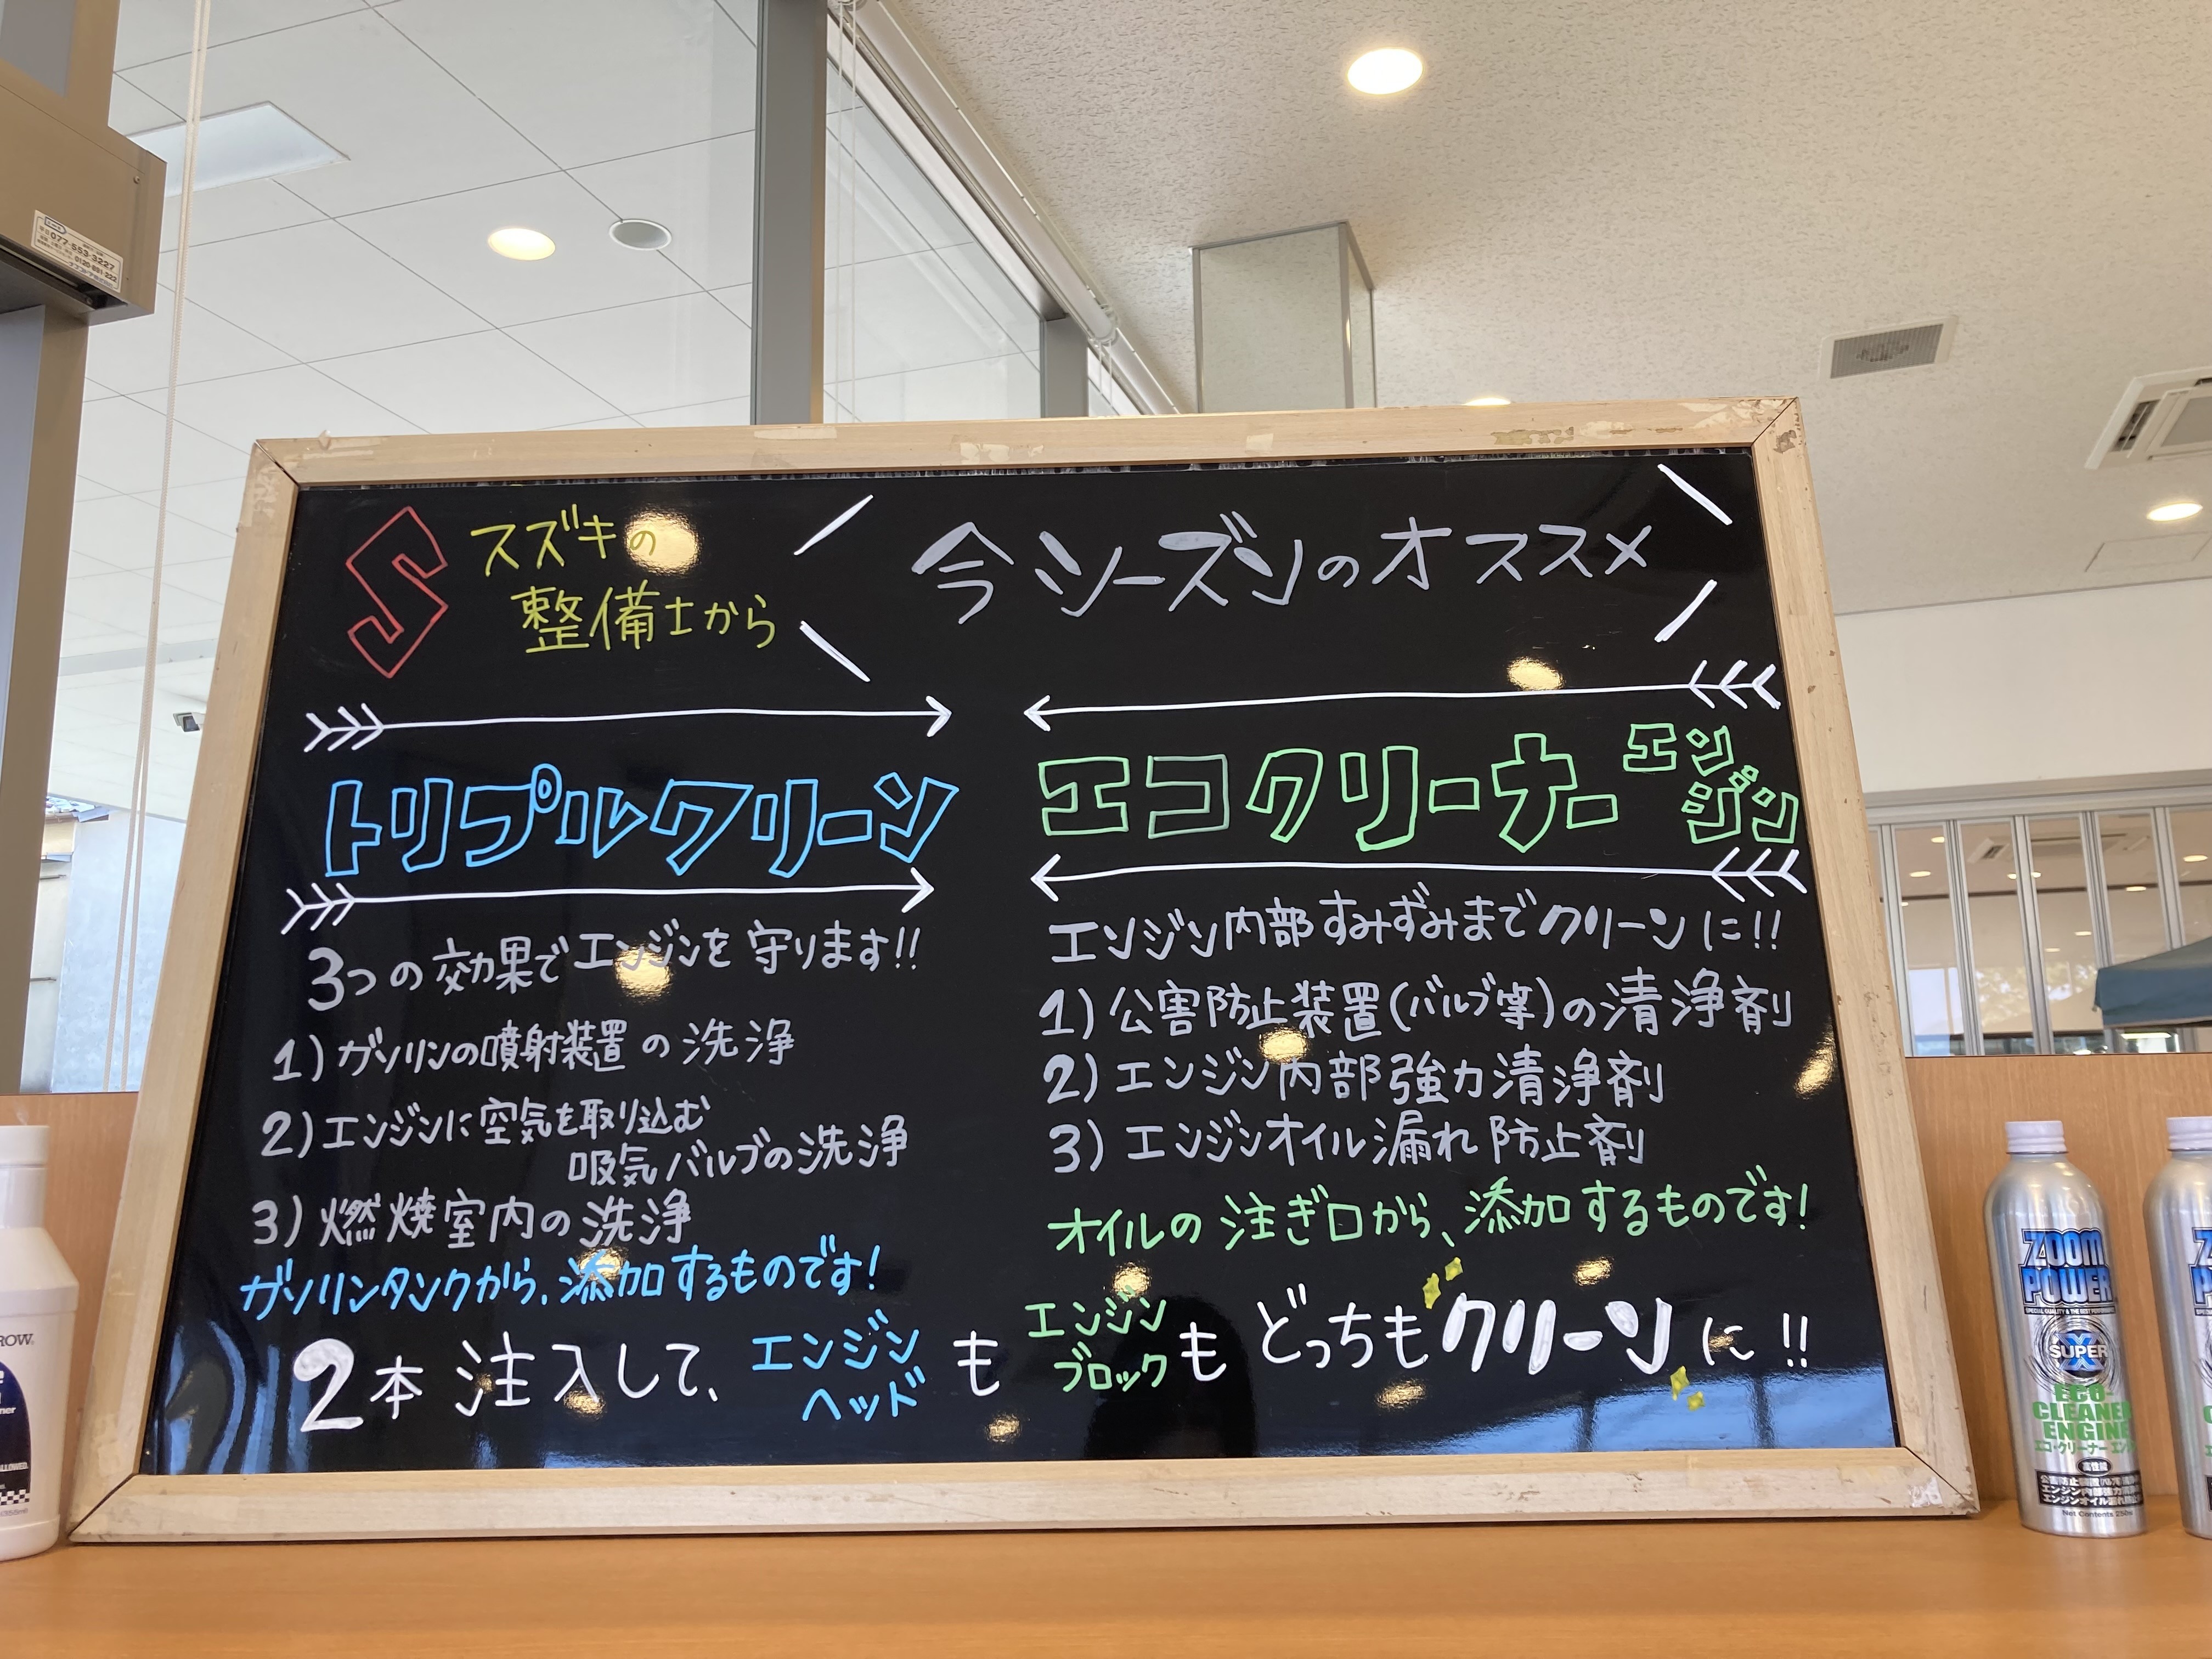 S
スズキの
整備士から
今シーズンのオススメ
トリプルクリーン
3つの効果でエンジンを守ります!!
1) ガソリンの噴射装置の洗浄
2) エンジンに空気を取り込む
吸気バルブの洗浄
3) 燃焼室内の洗浄
ガソリンタンクから、添加するものです!
エコクリーナー エン
ジン
エンジン内部すみずみまでクリーンに!!
1) 公害防止装置(バルブ等)の清浄剤
2) エンジン内部強力清浄剤
3) エンジンオイル漏れ防止剤
オイルの注ぎ口から、添加するものです!
2本注入して、エンジン
ヘッドもエンジン
ブロックもどっちもクリーンに!!
ZOOM
POWER
SUPER
X
ECO
CLEANER
ENGINE
エコ・クリーナー
高性能
Net Contents
077-553-3227